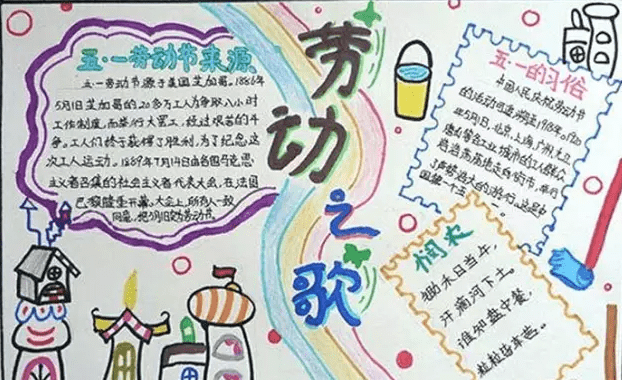 五·一劳动节来源
五·一劳动节源于美国芝加哥。1886年
5月1日芝加哥的20多万工人为争取八小时
工作制度,而举行大罢工,经过艰苦的斗
争。工人们终于获得了胜利,为了纪念这
次工人运动。1889年7月14日由各国马克思
主义者召集的社会主义者代表大会,在法国
巴黎隆重开幕。大会上,所有人一致
同意,把5月1日定为劳动节。
劳动之歌
五·一的习俗
中国人民庆祝劳动节
的活动可追溯至1918年。1920
年5月1日,北京、上海、广州、九江
唐山等各工业城市的工人群众
浩浩荡荡走向街市、举行
了声势浩大的游行,这是中
国第一个五一
悯农
锄禾日当午,
汗滴河下土。
谁知盘中餐,
粒粒皆辛苦。